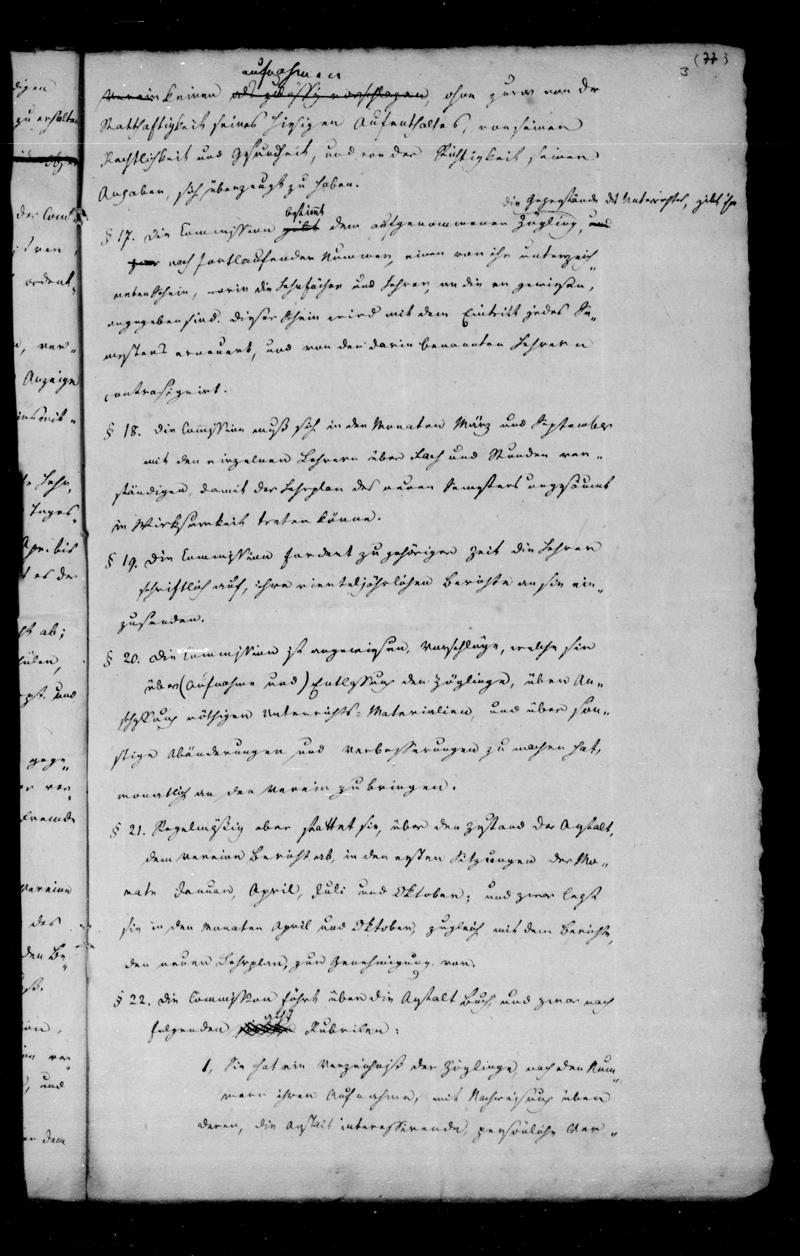 digen
zu erhalten
der Com¬
ordent¬
n, ver¬
Anzeige
te Lehr¬
Tages¬
Apr. bis
t es der
ht ab;
pst. und
gege¬
er ver¬
Fremde
Vereine
des
den Be¬
, und
er dem
3 (77)
aufnehmen
Verein keinen als zulässig vorschlagen, ohne zuvor von der
Statthaftigkeit seines hiesigen Aufenthaltes, von seiner
Rechtlichkeit und Gesundheit, und von der Richtigkeit seiner
Angaben, sich überzeugt zu haben.
die Gegenstände des Unterrichtes, gibt ihm
bestimt
§ 17. Die Commission gibt dem aufgenommenen Zögling, und
zwar nach fortlaufender Nummer, einen von ihr unterzeich¬
neten Schein, worin die Lehrfächer und Lehrer, an die er gewiesen,
angegeben sind. Dieser Schein wird mit dem Eintritt jedes Se¬
mesters erneuert, und von den darin benannten Lehrern
contrasignirt.
§ 18. Die Commission muß sich in den Monaten März und September
mit den einzelnen Lehrern über Fach und Stunden ver¬
ständigen, damit der Lehrplan des neuen Semesters ungesäumt
in Wirksamkeit treten könne.
§ 19. Die Commission fordert zu gehöriger Zeit die Lehrer
schriftlich auf, ihre vierteljährlichen Berichte an sie ein¬
zusenden.
§ 20. Die Commission ist angewiesen, Vorschläge, welche sie
über (Aufnahme und) Entlassung der Zöglinge, über An¬
schaffung nöthiger Unterrichts-Materialien, und über son¬
stige Abänderungen und Verbesserungen zu machen hat,
monatlich an den Verein zu bringen.
§ 21. Regelmäßig aber stattet sie, über den Zustand der Anstalt,
dem Vereine Bericht ab, in den ersten Sitzungen der Mo¬
nate Januar, April, Juli und Oktober; und zwar legt
sie in den Monaten April und Oktober, zugleich mit dem Berichte,
den neuen Lehrplan, zur Genehmigung vor.
§ 22. Die Commission führt über die Anstalt Buch, und zwar nach
acht
folgenden Rubriken:
1, Sie hat ein Verzeichniß der Zöglinge, nach den Num¬
mern ihrer Aufnahme, mit Nachweisung über
deren, die Anstalt interessirende, persönliche Ver¬